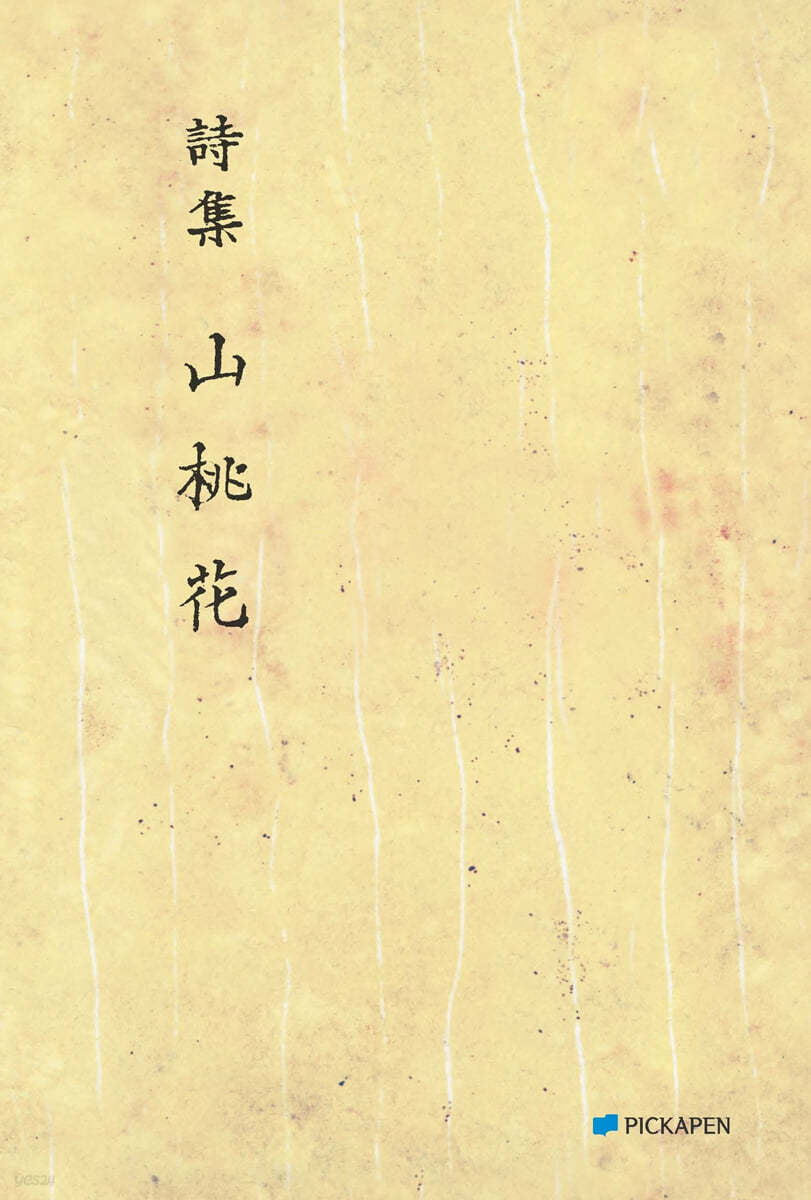 詩集 山桃花
PICKAPEN
yes24